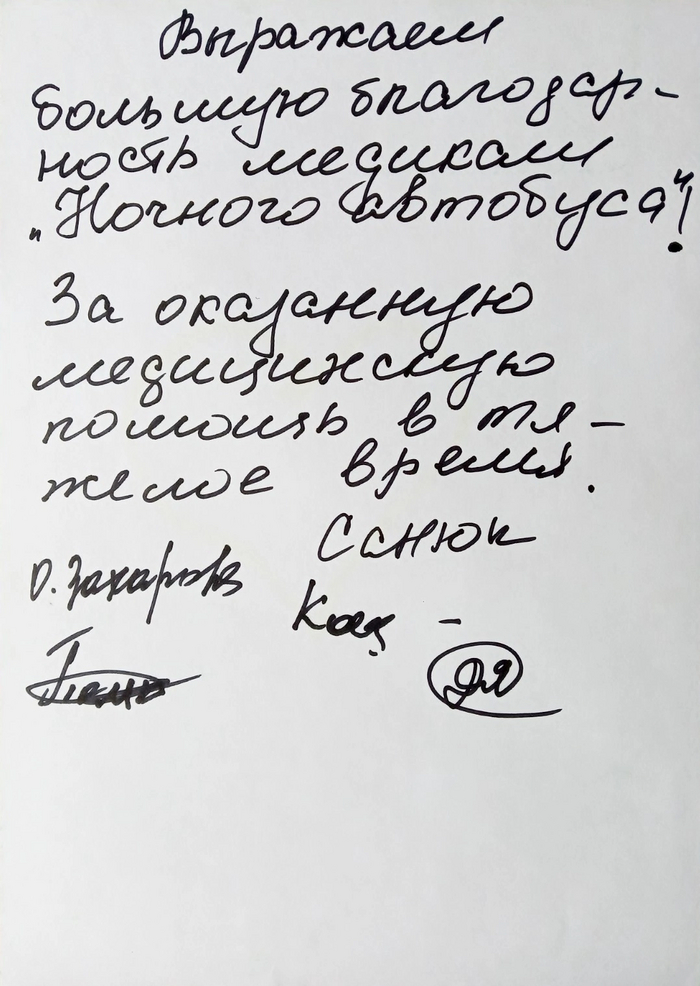 Выражаем
большую благодар-
ность медикам
„Ночного автобуса"!
За оказанную
медицинскую
помощь в тя-
желое время.
Санюк
О. Захарова
Кац -
ЭЯ